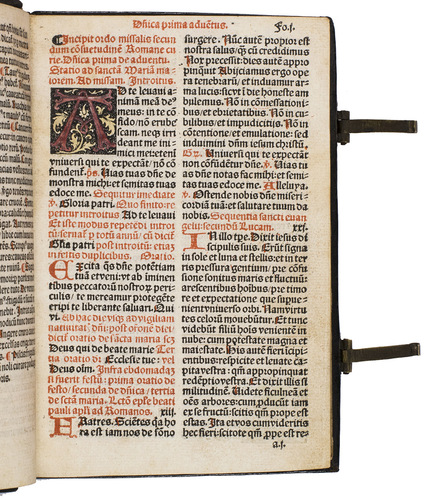 Dñica prima aduẽtus.
Fo.j.
Incipit ordo missalis secun
dum cõsuetudinẽ Romane cu
rie. Dñica prima de aduentu.
Statio ad sanctã Mariã ma
iorem. Ad missam. Introitus.
AD te leuaui a
nimã meã de⁹
meus: in te cõ
fido nõ erube
scam. neqȝ irri
deant me ini-
mici mei etenĩ
vniuersi qui te expectãt/ nõ cõ
fundent̃. ps. Uias tuas dñe de
monstra michi: et semitas tuas
edoce me. Sequitur imediate
v. Gloria patri. Quo finito: re
petitur introitus Ad te leuaui
Et iste modus repetẽdi introi
tũ: seruat᷑ p totũ annũ/ cũ dicit᷑
Glia patri post introitũ: etiã
in festis duplicibus. Oratio.
EXcita qs dñe potẽtiam
tuã et veni: vt ab iminen
tibus peccatorũ nostrorũ peri
culis/ te mereamur protegẽte
eripi te liberante saluari. Qui
vi. Ab hac die vsqȝ ad vigiliam
natiuitat᷑ dñi: post orõnẽ diei
dicit᷑ oratio de scãta maria scȝ
Deus qui de beate marie Ter
tia oratio di Ecclesie tue: vel
Deus oĩm. Infra ebdomadãȝ
si fuerit festũ: prima oratio de
festo/ secunda de dñica/ tertia
de sctã maria. Lctõ eple beati
pauli apli ad Romanos. xiij.
FRatres. Sciẽtes qa ho
ra est iam nos de sõno
surgere. Nũc autẽ propior est
nostra salus/ qȝ cũ credidimus
Nox precessit: dies autẽ appro
pinq̃uit Abijciamus ergo ope
ra tenebrarũ/ et induamur ar
ma lucis: sicvt ĩ die honeste am
bulemus. Nõ in comessationi-
bus et ebrietatibus. Nõ in cu-
bilibus et impudicitijs. Nõ in
cõtentione/ et emulatione: sed
induimini dñm iesum christũ.
Gr. Uniuersi qui te expectãt
non cõfũdent᷑ dñe. v. Uias tu
as dñe notas fac mihi: et semi
tas tuas edoce me. Alleluya.
v. Ostende nobis dñe miseri-
cordiã tuã: et salutare tuum da
nobis. Sequentia sancti euan
gelij: secundũ Lucam. xxj.
IN illo tpe. Dixit iesus di
scipulis suis. Erũt signa
in sole et luna et stellis: et in ter
ris pressura gentium/ pre cõfu
sione sonitus maris et fluctuũ:
arescentibus hoĩbus/ pre timo
re et expectatione que supue-
nient vniuerso orbi. Nam virtu
tes celorũ mouebũtur. Et tunc
videbũt filiũ hoĩs venientẽ in
nube: cum potestate magna et
maiestate. His autẽ fieri incipi
entibus: respicite et leuate ca
pita vestra: qm̃ appropinquat
redẽptio vestra. Et dixit illis si
militudinẽ. Uidete ficulneã et
oẽs arbores: cum pducũt iam
ex se fructũ: scitis qm̃ prope est
estas. Ita et vos cum videritis
hec fieri: scitote qm̃ ppe est re-
a.j.